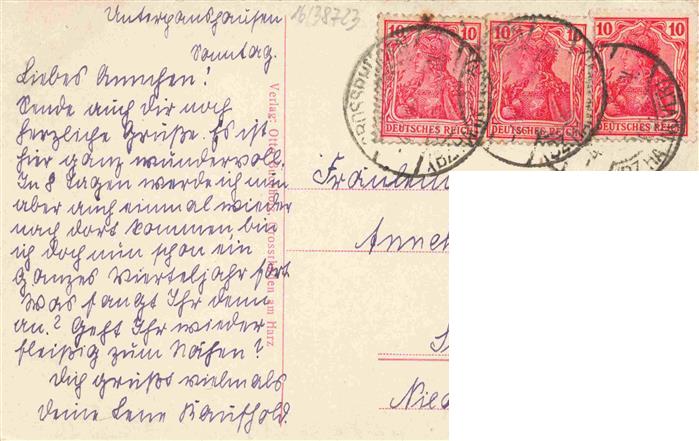 16/38723
Unterpanshausen
Sonntag.
Liebes Annchen!
Sende auch dir noch
herzliche Grüße. Es ist
hier ganz wundervoll.
In 8 Tagen werde ich nun
aber auch einmal wieder
nach dort kommen, bin
ich doch nun schon ein
ganzes Vierteljahr fort
Was fangt Ihr denn
an? Geht Ihr wieder
fleißig zum Nähen?
Dich grüßt vielmals
deine Lene Kaufhold.
Verlag: Otto am Harz
10 10
DEUTSCHES REICH
10
DEUTSCHES REICH
10 10
DEUTSCHES REICH
Fräulein
Anne
Nied